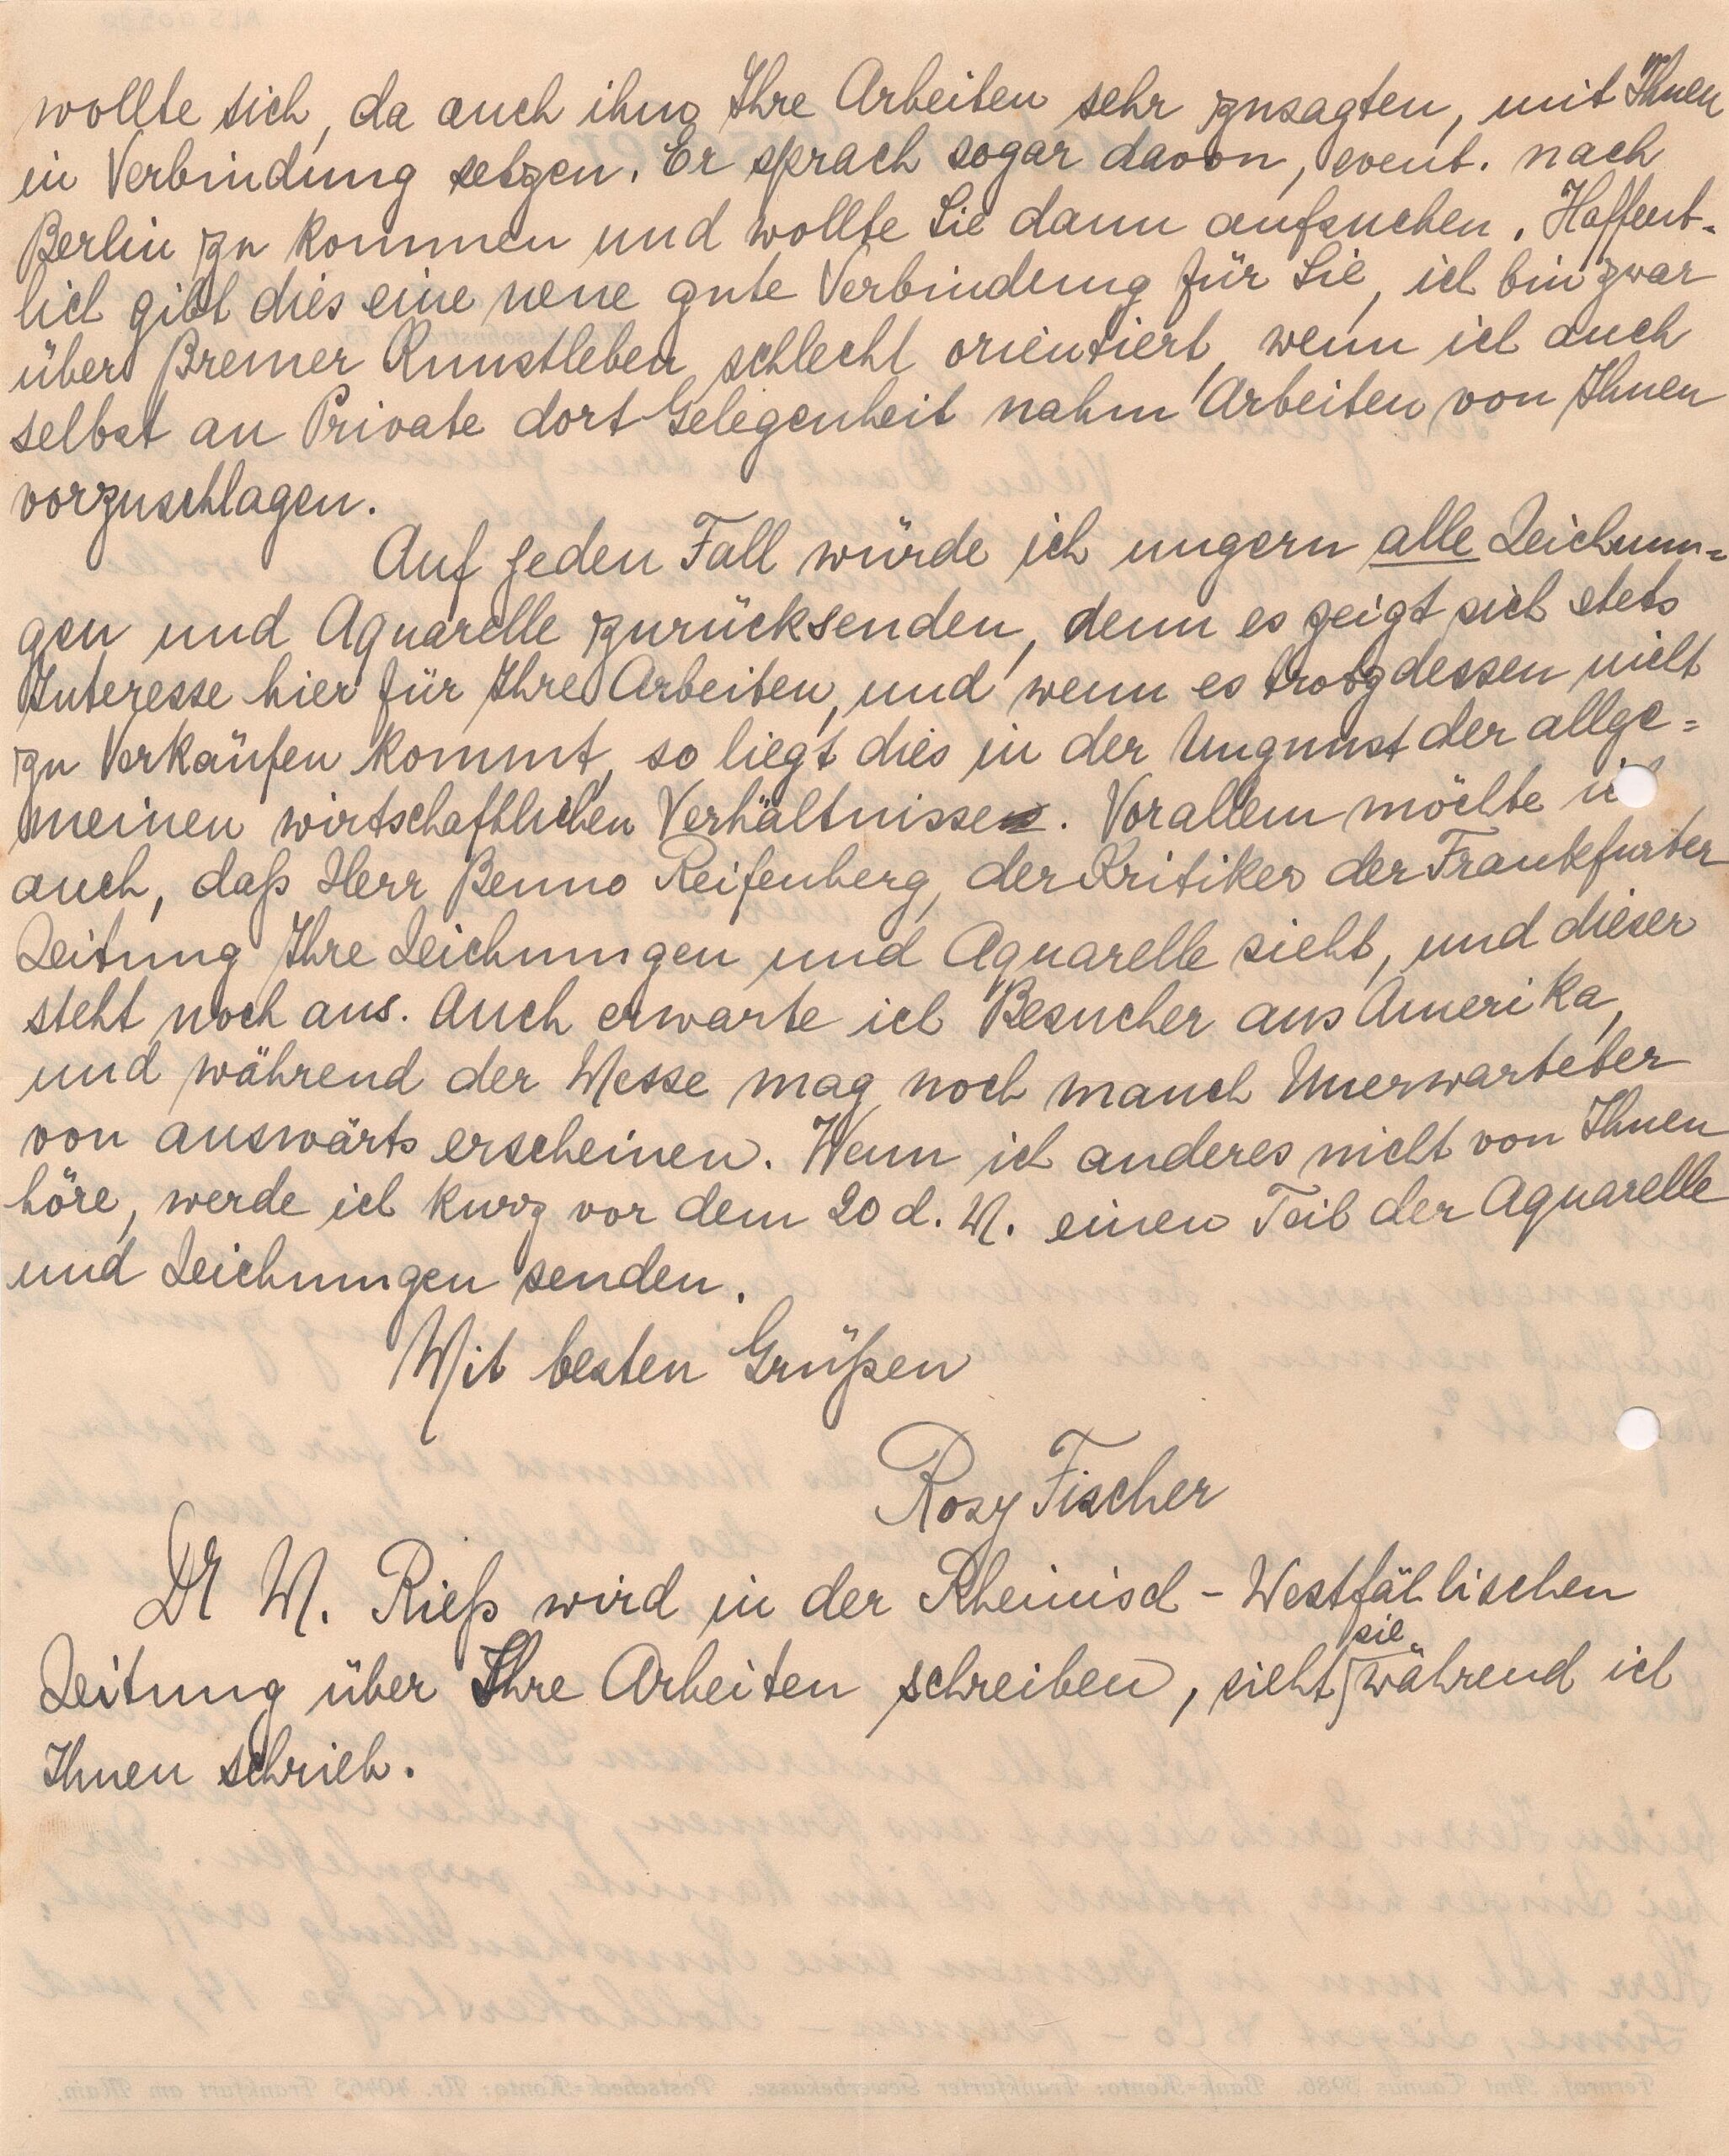 wollte sich, da auch ihm Ihre Arbeiten sehr zusagten, mit Ihnen
in Verbindung setzen. Er sprach sogar davon, event. nach
Berlin zu kommen und wollte Sie dann aufsuchen. Hoffent-
lich gibt dies eine neue gute Verbindung für Sie, ich bin zwar
über Bremer Kunstleben schlecht orientiert, wenn ich auch
selbst an Private dort Gelegenheit nahm Arbeiten von Ihnen
vorzuschlagen.
Auf jeden Fall würde ich ungern alle Zeichnun=
gen und Aquarelle zurücksenden, denn es zeigt sich stets
Interesse hier für Ihre Arbeiten, und wenn es trotzdessen nicht
zu Verkäufen kommt, so liegt dies in der Ungunst der allge=
meinen wirtschaftlichen Verhältnisse. Vorallem möchte ich
auch, daß Herr Benno Reifenberg, der Kritiker der Frankfurter
Zeitung Ihre Zeichnungen und Aquarelle sieht, und dieser
steht noch aus. Auch erwarte ich Besucher aus Amerika,
und während der Messe mag noch manch Unerwarteter
von auswärts erscheinen. Wenn ich anderes nicht von Ihnen
höre, werde ich kurz vor dem 20 d. M. einen Teil der Aquarelle
und Zeichnungen senden.
Mit besten Grüßen
Rosy Fischer
Dr W. Rieß wird in der Rheinisch-Westfählischen
Zeitung über Ihre Arbeiten schreiben, sieht sie während ich
Ihnen schrieb.
Fernruf: Amt Taunus 3986. Bank=Konto: Frankfurter Gewerbekasse. Postscheck=Konto: Nr. 40465 Frankfurt am Main.